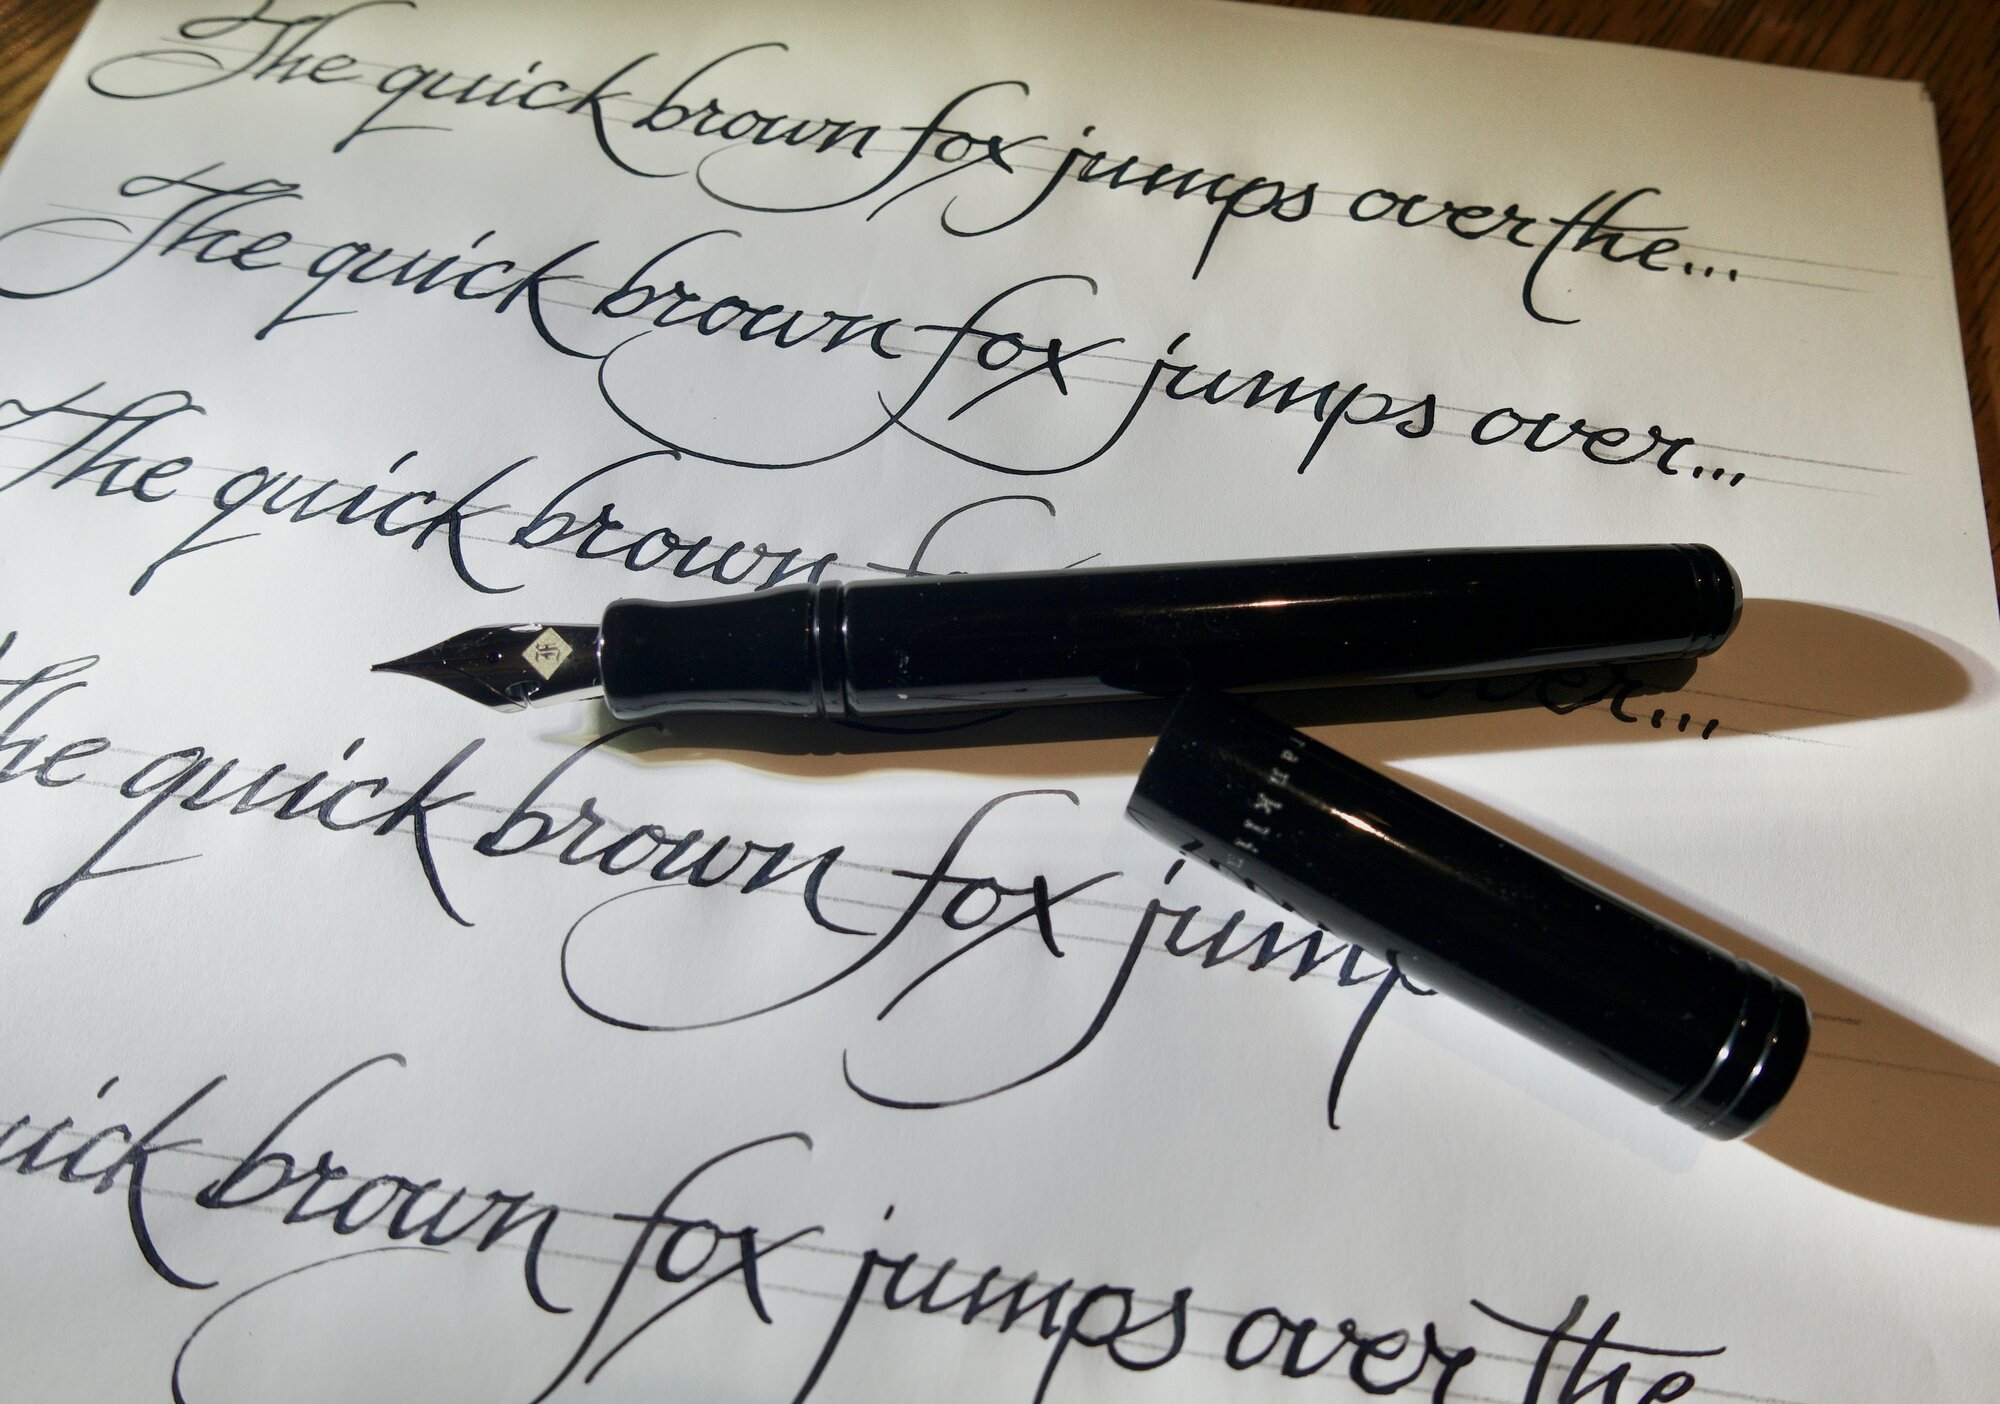 The quick brown fox jumps over the...
The quick brown fox jumps over...
The quick brown over...
The quick brown fox jump
brown fox jumps over the